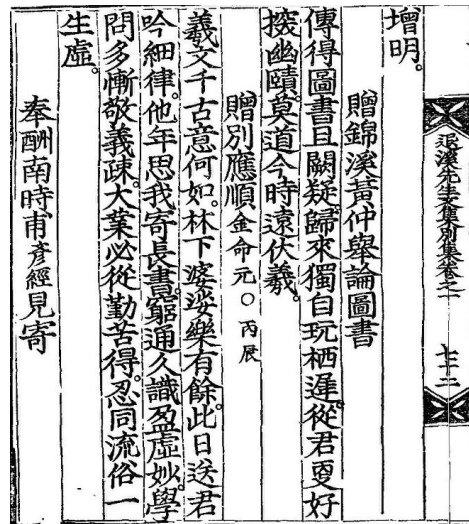 退溪先生文集別集卷之一 七十二
增明。
贈錦溪黃仲擧論圖書
傳得圖書且闕疑。歸來獨自玩栖遲。從君更好
探幽賾。莫道今時遠伏羲。
贈別應順 金命元○丙辰
羲文千古意何如。林下婆娑樂有餘。此日送君
吟細律。他年思我寄長書。窮通久識盈虛妙。學
問多慚敬義疎。大業必從勤苦得。忍同流俗一
生虛。
奉酬南時甫彥經見寄